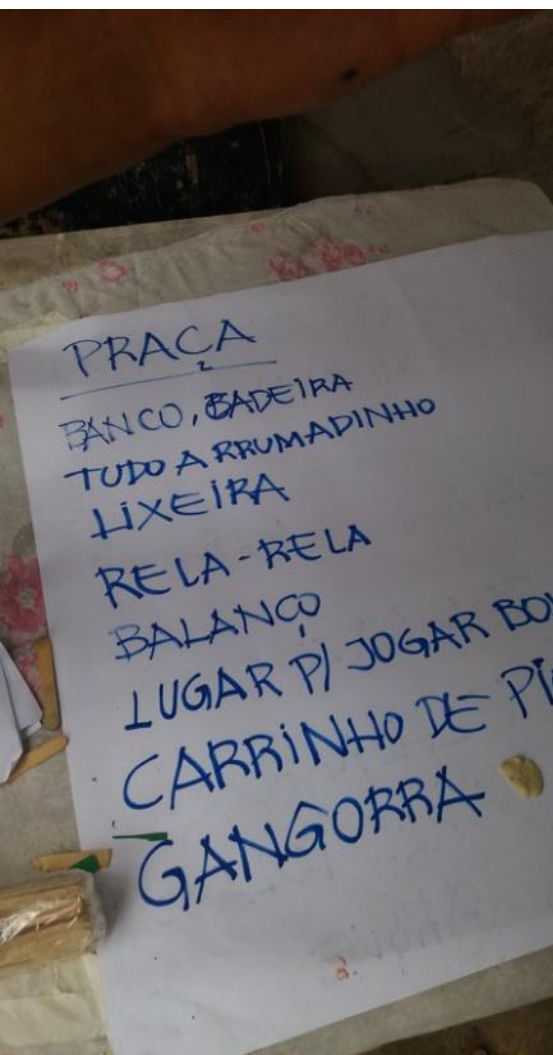 PRAÇA
BANCO, CADEIRA
TUDO ARRUMADINHO
LIXEIRA
RELA-RELA
BALANÇO
LUGAR P/ JOGAR
CARRINHO DE
GANGORRA